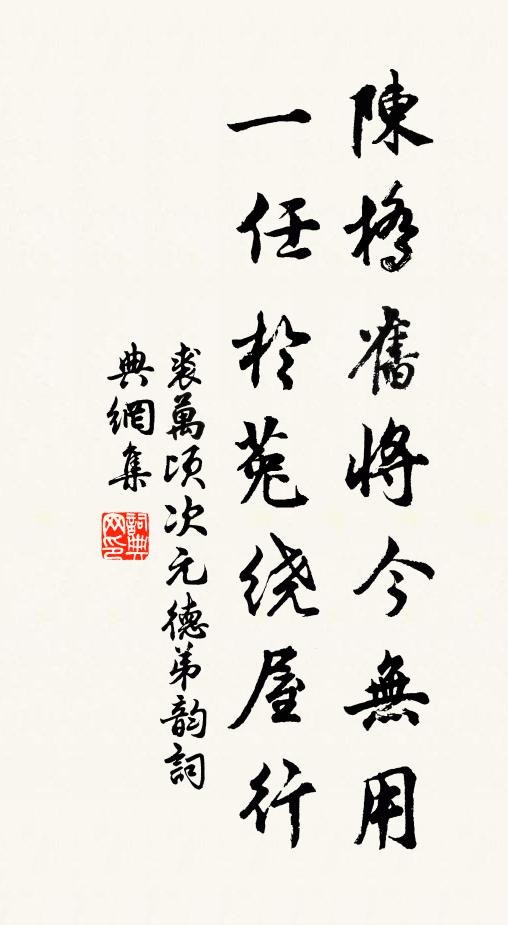 陳橋舊將今無用
一任於菟繞屋行
裘萬頃次元德弟韵詞
典網集
詞典网印